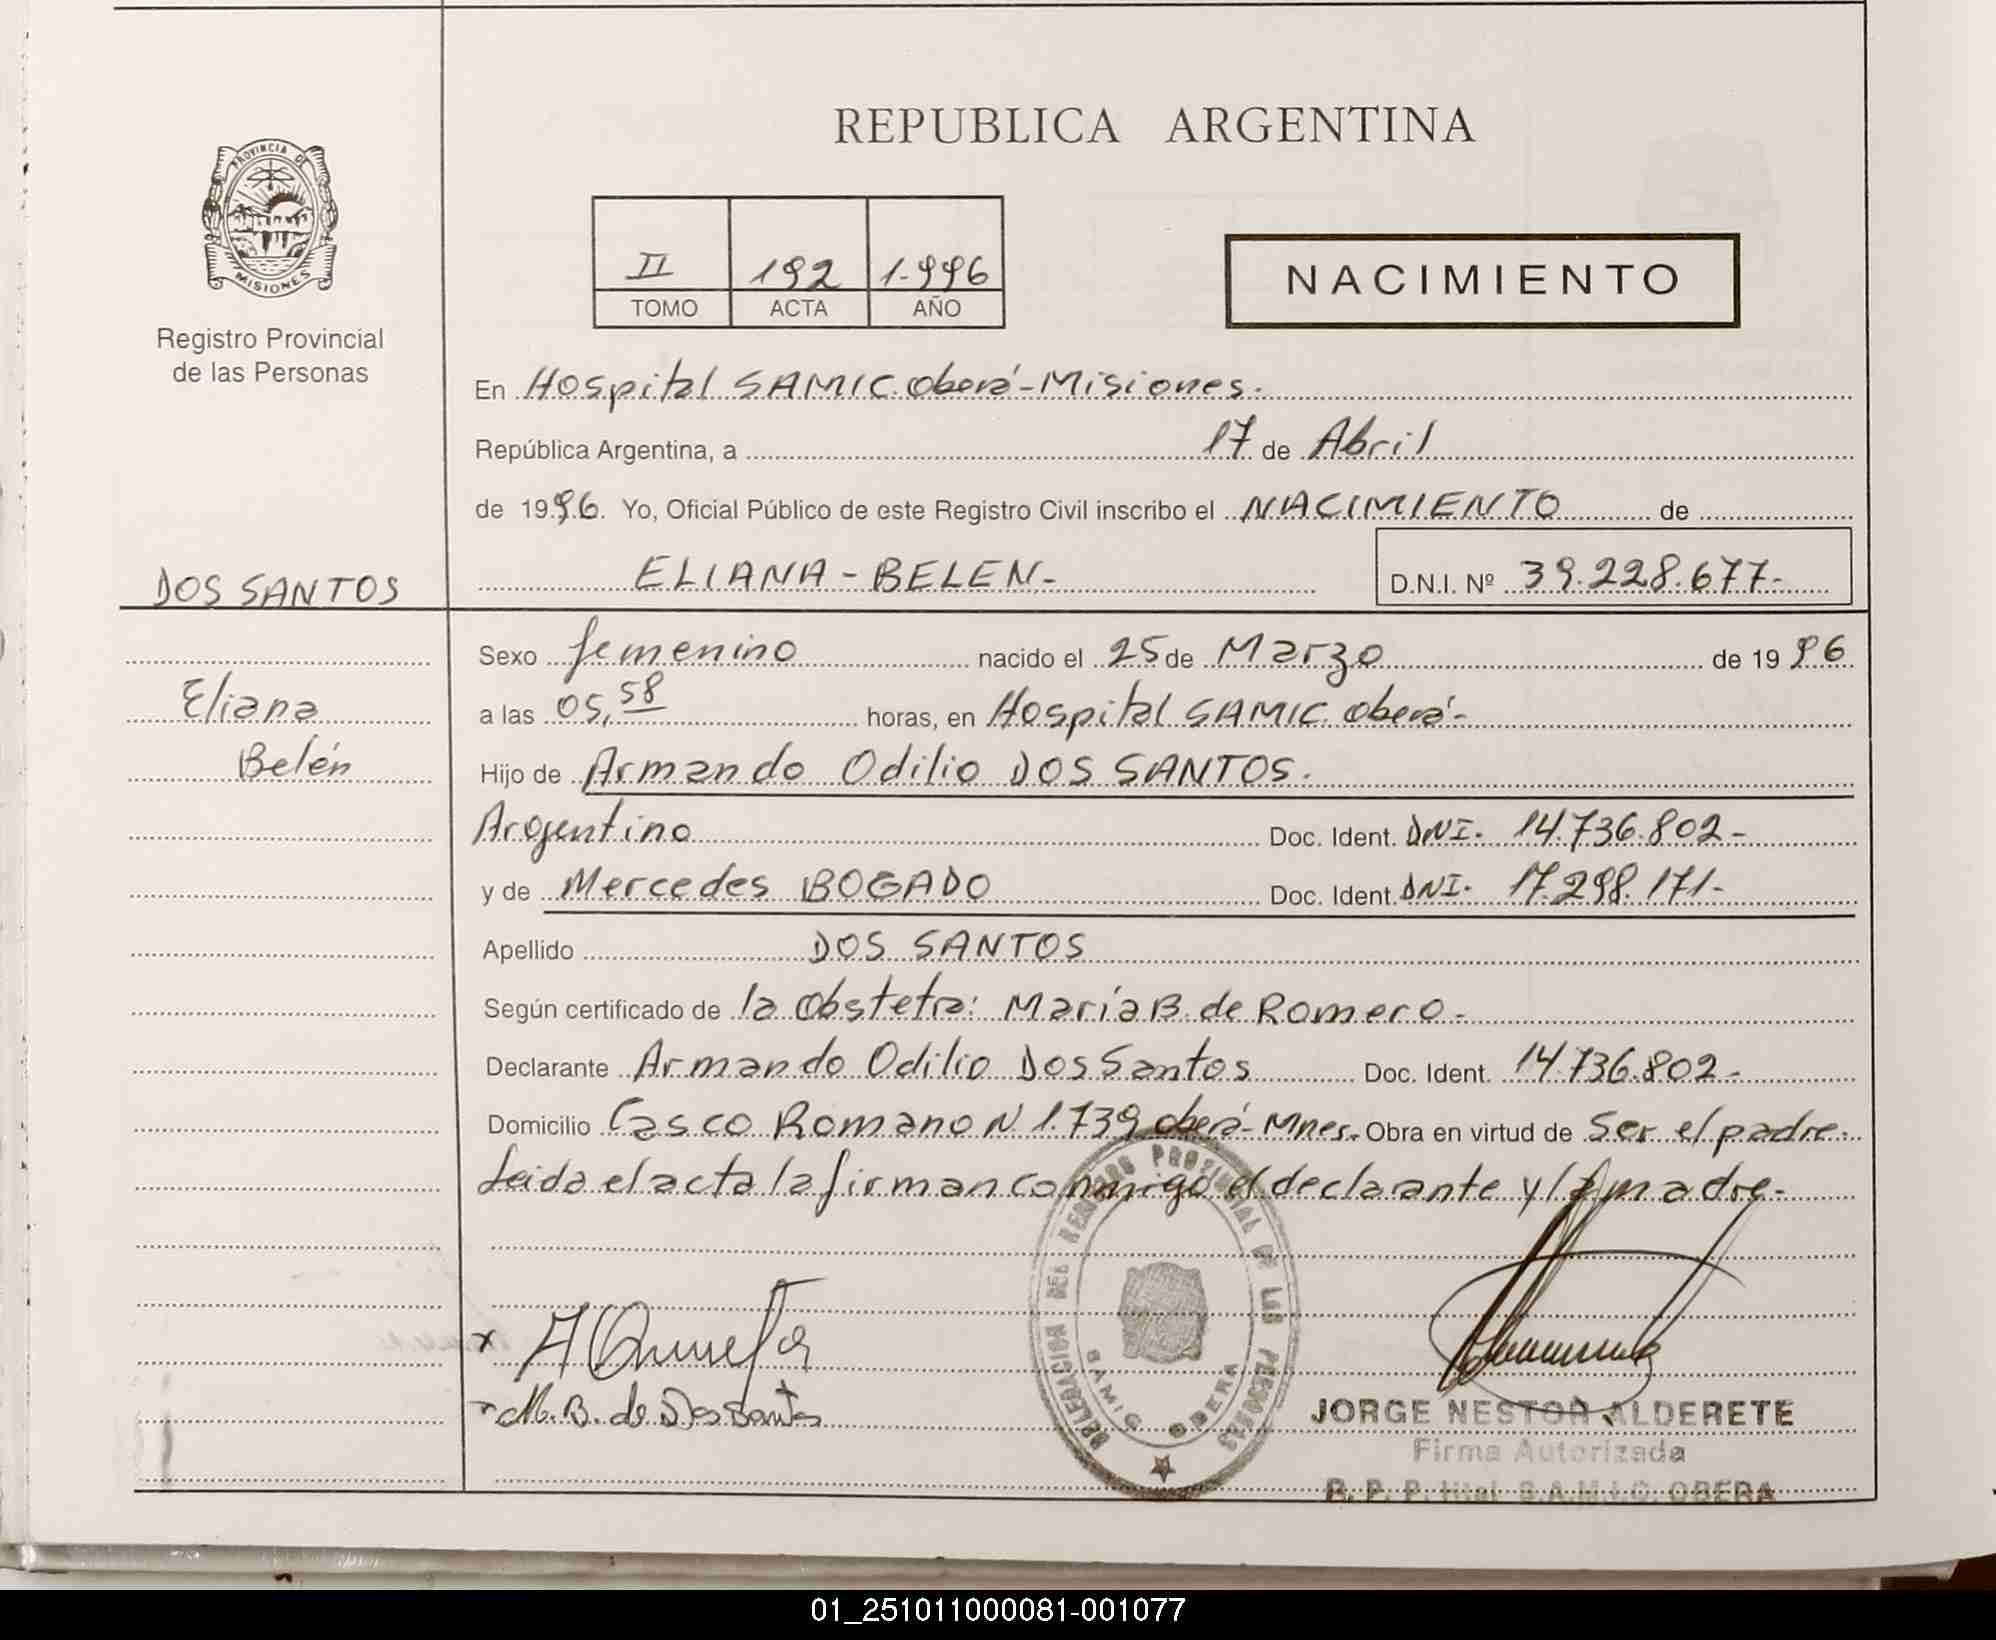 REPUBLICA ARGENTINA
PROVINCIA DE
MISIONES
Registro Provincial
de las Personas
II 192 1.996
TOMO ACTA AÑO
NACIMIENTO
En Hospital SAMIC. Oberá-Misiones.
República Argentina, a 17 de Abril
de 1996. Yo, Oficial Público de este Registro Civil inscribo el NACIMIENTO de
ELIANA-BELEN- D.N.I. Nº 39.228.677-
DOS SANTOS
Eliana
Belén
Sexo femenino nacido el 25 de Marzo de 1996
a las 05,58 horas, en Hospital SAMIC. Oberá-
Hijo de Armando Odilio DOS SANTOS.
Argentino Doc. Ident. DNI. 14.736.802-
y de Mercedes BOGADO Doc. Ident. DNI. 17.298.171-
Apellido DOS SANTOS
Según certificado de la Obstetra: María B. de Romero-
Declarante Armando Odilio Dos Santos Doc. Ident. 14.736.802-
Domicilio Casco Romano N 1.739 Oberá-Mnes. Obra en virtud de Ser el padre.
Leida el acta la firman conmigo el declarante y la madre-
DELEGACION DEL REGISTRO PROVINCIAL DE LAS PERSONAS
SAMIC OBERA
M. B. de Dos Santos
JORGE NESTOR ALDERETE
Firma Autorizada
R. P. P. Htal S.A.M.I.C. OBERA
01_251011000081-001077